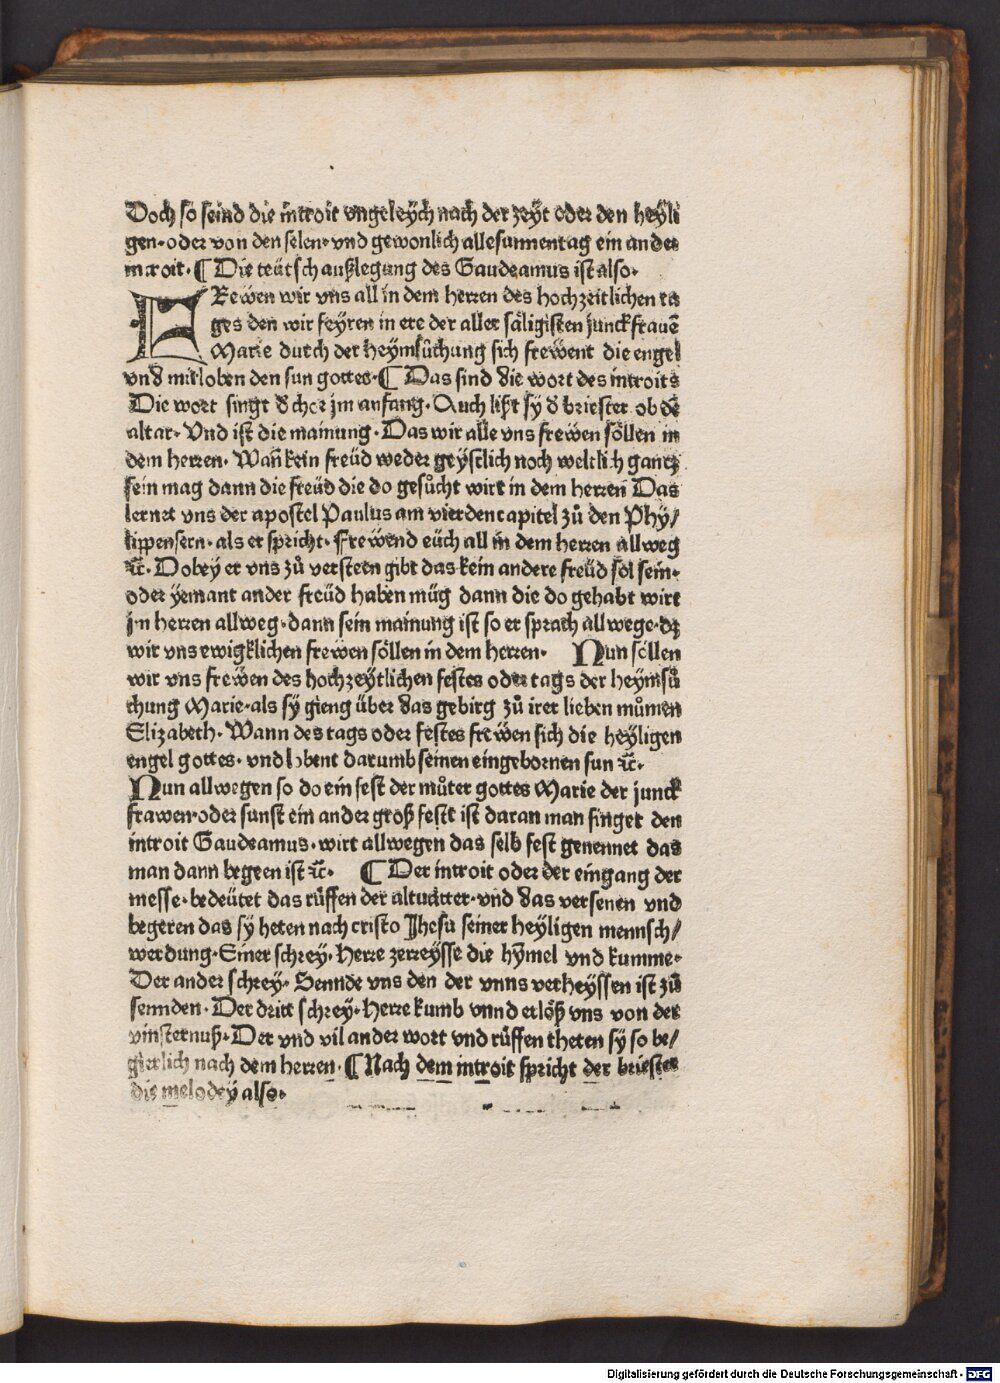 Doch so seind die introit vngeleych nach der zeyt oder den heyli
gen· oder von den selen· vnd gewonlich alle sunnentag ein ander
introit· ¶ Die teütsch außlegung des Gaudeamus ist also·
FRewen wir vns all in dem herren des hochzeitlichen ta
ges den wir feyren in ere der aller säligisten junckfrauē
Marie durch der heymsůchung sich frewent die engel
vnd mitloben den sun gottes· ¶ Das sind die wort des introits
Die wort singt d chor jm anfang· Auch lißt sy d briester ob dē
altar· Vnd ist die mainung· Das wir alle vns frewen söllen in
dem herren· Wañ kein freüd weder geystlich noch weltlich gantz
sein mag dann die freüd die do gesůcht wirt in dem herren Das
lernet vns der apostel Paulus am vierden capitel zů den Phy/
lippensern· als er spricht· Frewend eüch all in dem herren allweg
ꝛc̄· Dobey er vns zů versteen gibt das kein andere freüd sol sein·
oder yemant ander freüd haben müg dann die do gehabt wirt
jn herren allweg· dann sein mainung ist so er sprach allwege· dz
wir vns ewigklichen frewen söllen in dem herren· Nun söllen
wir vns frewen des hochzeytlichen festes oder tags der heymsů
chung Marie· als sy gieng über das gebirg zů irer lieben můmen
Elizabeth· Wann des tags oder festes frewen sich die heyligen
engel gottes· vnd lobent darumb seinen eingebornen sun ꝛc̄·
Nun allwegen so do ein fest der můter gottes Marie der junck
frawen· oder sunst ein ander groß feste ist daran man singet den
introit Gaudeamus· wirt allwegen das selb fest genennet das
man dann begeen ist ꝛc̄· ¶ Der introit oder der eingang der
messe· bedeütet das růffen der altuätter· vnd das versenen vnd
begeren das sy heten nach cristo Jhesu seiner heyligen mennsch/
werdung· Einer schrey· Herre zerreysse die hymel vnd kumme·
Der ander schrey· Sennde vns den der vnns verheyssen ist zů
sennden· Der dritt schrey· Herre kumb vnnd erlöß vns von der
vinsternuß· Der vnd vil ander wort vnd růffen theten sy so be/
girlich nach dem herren· ¶ Nach dem introit spricht der briester
die melodey also·
Digitalisierung gefördert durch die Deutsche Forschungsgemeinschaft - DFG